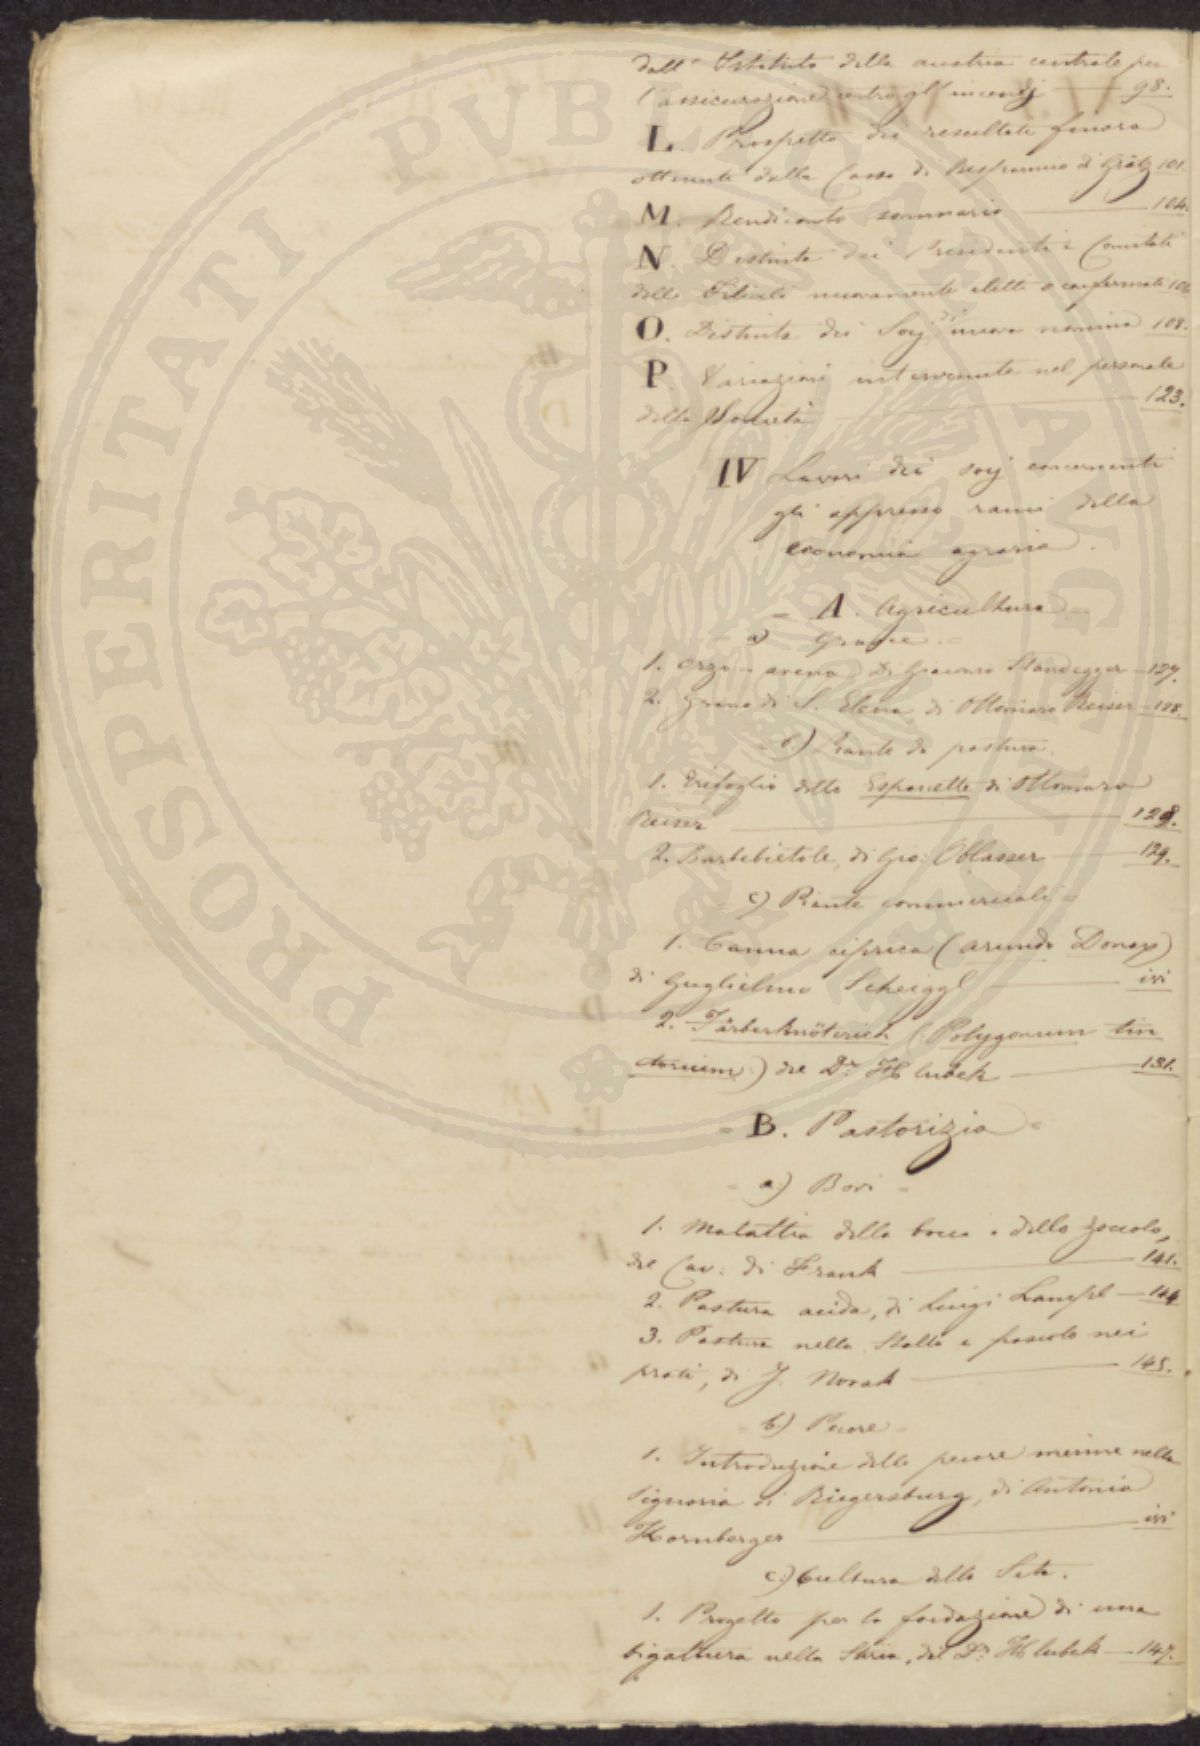 dall' Istituto della austria centrale per
l'assicurazione contro gl' incendj — 98.
L. Prospetto dei resultati finora
ottenuti dalla Cassa di Risparmio di Grätz 101.
M. Rendiconto sommario — 104.
N. Distinta dei Presidenti e Comitati
delle Filiali nuovamente eletti o confermati 106
O. Distinta dei Socj di nuova nomina 108.
P. Variazioni intervenute nel personale
della Società — 123.
IV Lavori dei socj concernenti
gli appresso rami della
economia agraria.
= A. Agricultura =
a) Granie =
1. Orzo - avena di Giacomo Standegger — 127.
2. Grano di S. Elena di Ottomaro Reiser — 128.
b) Piante da pastura.
1. Trifoglio detto Esparcette di Ottomaro
Reiser — 128.
2. Barbebietole, di Gio: Oblasser — 129.
= c) Piante commerciali =
1. Canna ciprica (Arundo Donax)
di Guglielmo Scheiggl — ivi
2. Färberknöterich (Polygonum tin
ctorium) del Dr. Hlubek — 131.
= B. Pastorizia =
= a) Bovi =
1. Malattia della bocca e dello zoccolo,
del Cav: di Frank — 141.
2. Pastura acida, di Luigi Lampl — 144
3. Pastura nella stalla e pascolo nei
prati, di J. Novak — 145.
b.) Pecore
1. Introduzione delle pecore merine nella
Signoria di Riegersburg, di Antonia
Hornberger — ivi
c.) Cultura della Seta.
1. Progetto per la fondazione di una
bigattiera nella Stiria, del Dr. Hlubek — 147.
PROSPERITATI PVBLICAE AVGENDAE